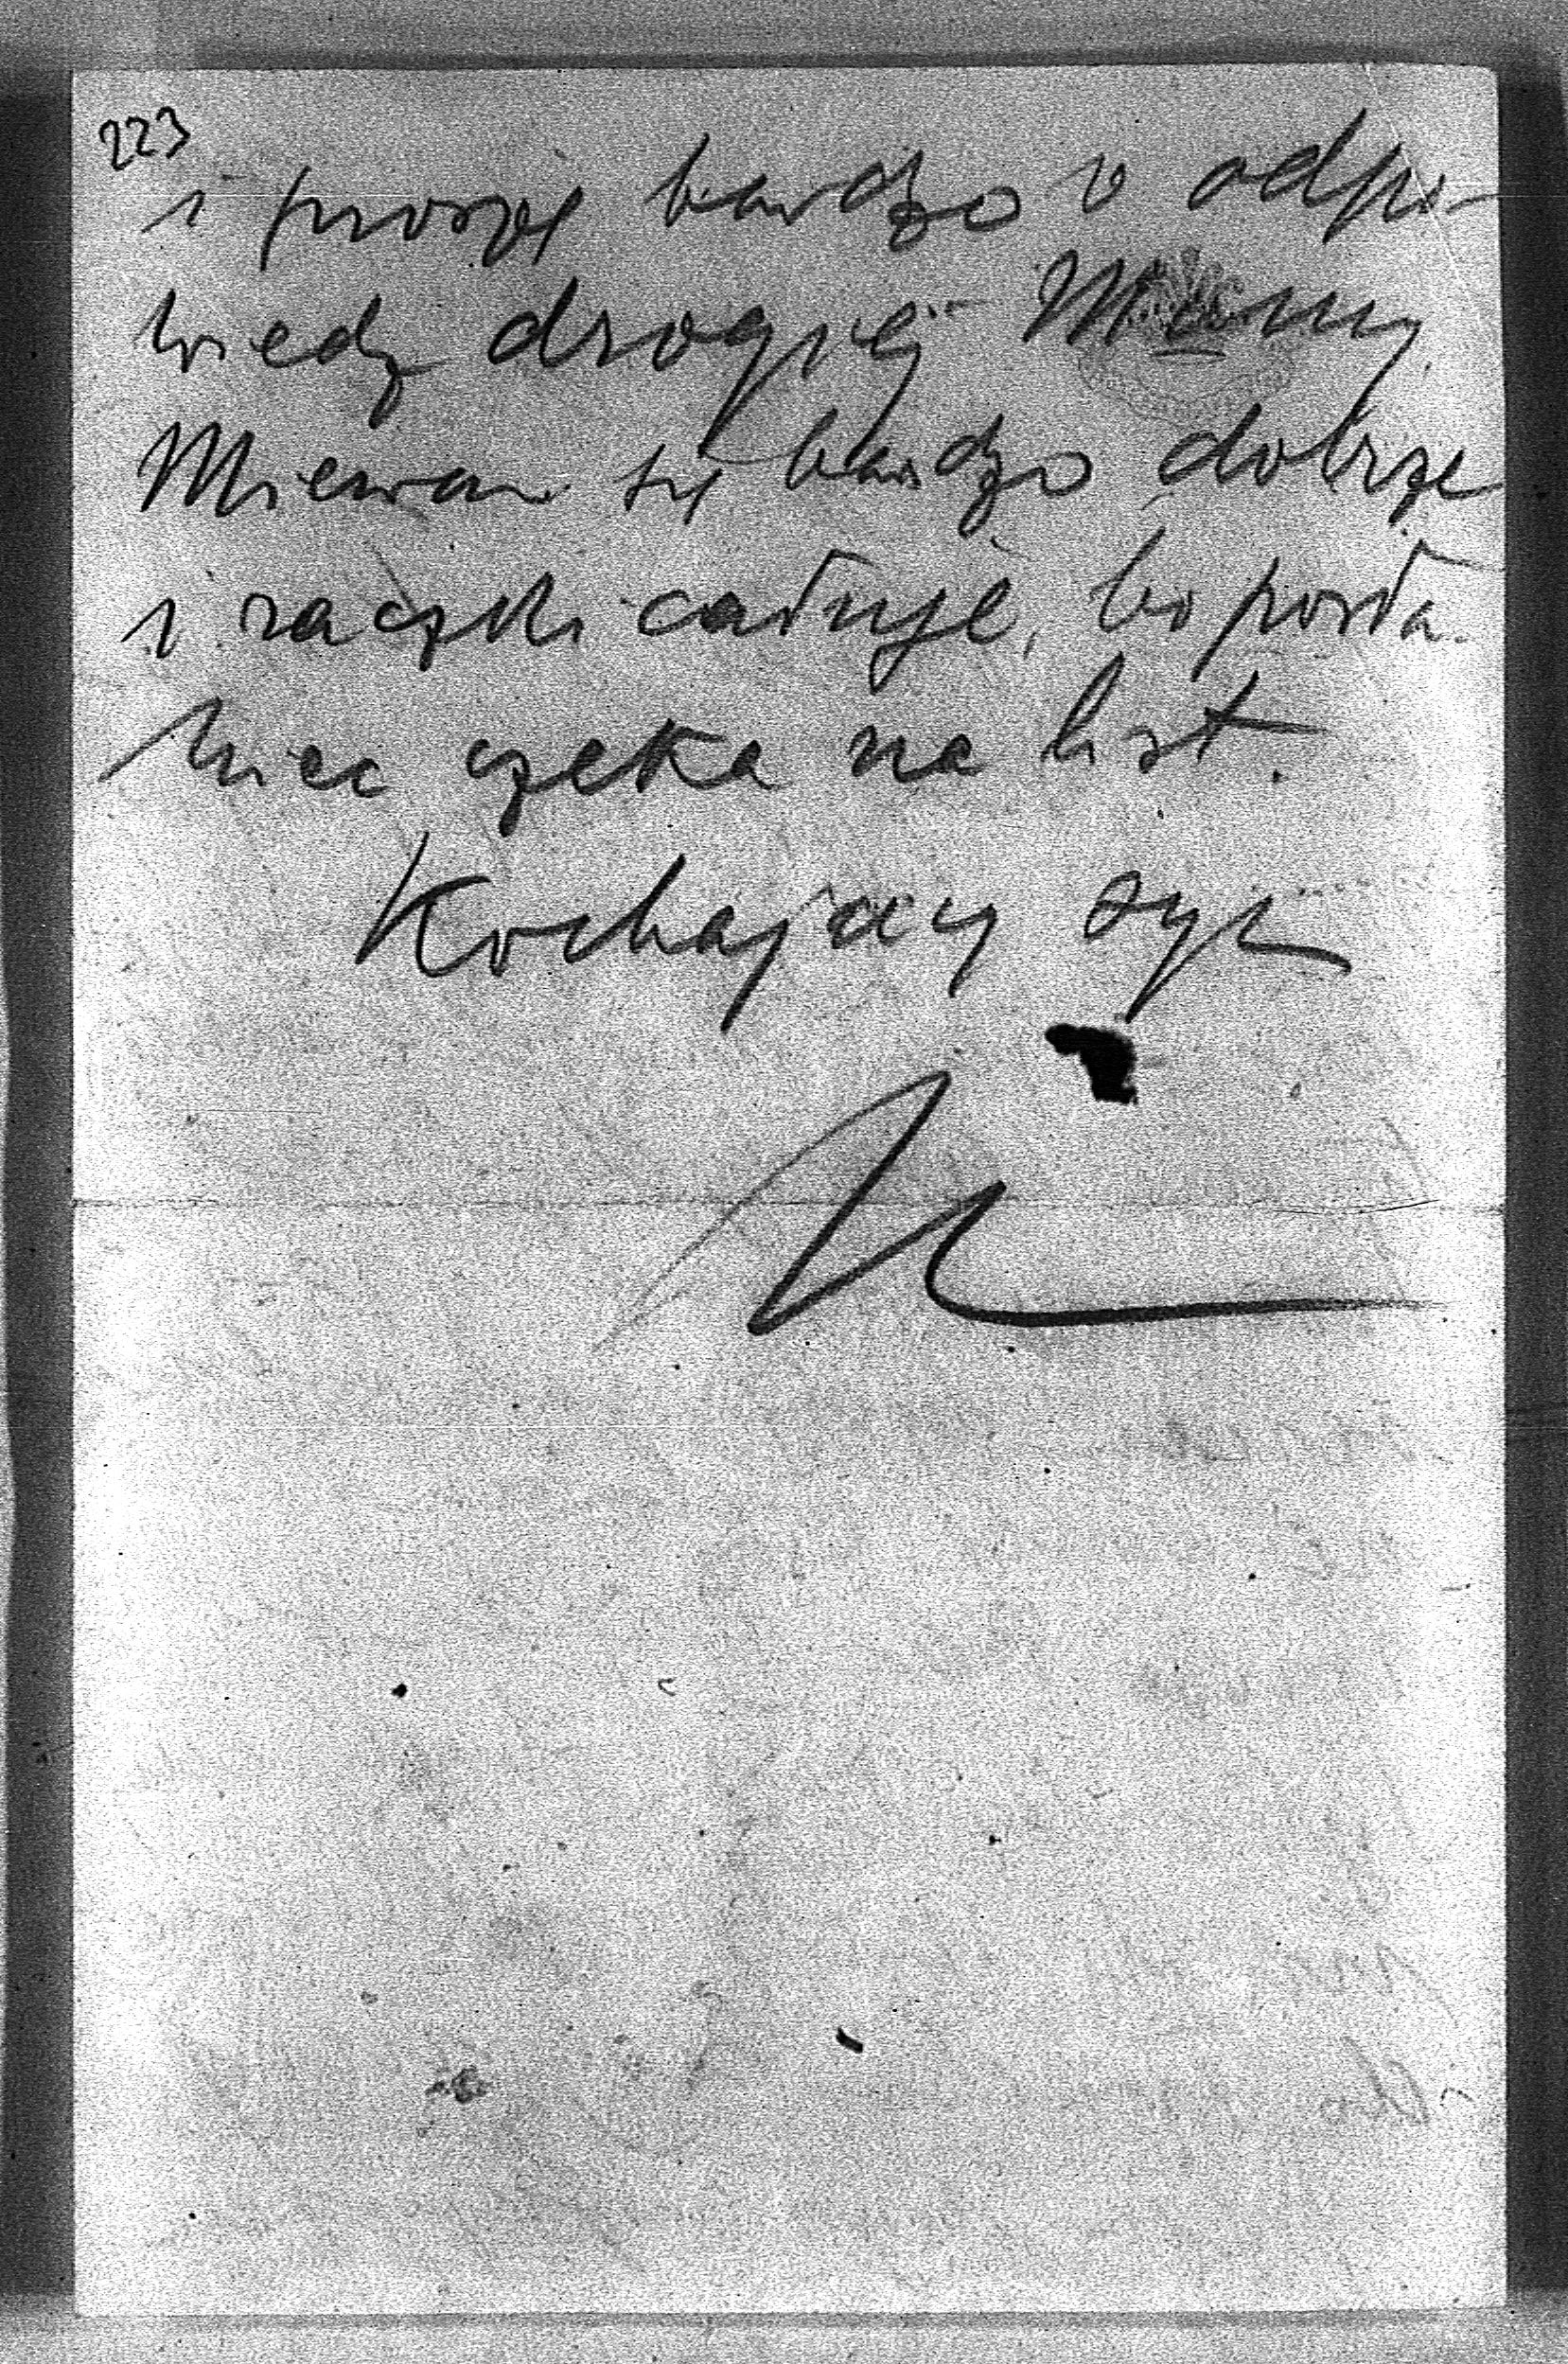 223
i proszę bardzo o odpo-
wiedź drogiej Mamy.
Miewam się bardzo dobrze
i rączki całuję, bo posła-
niec czeka na list.
Kochający syn